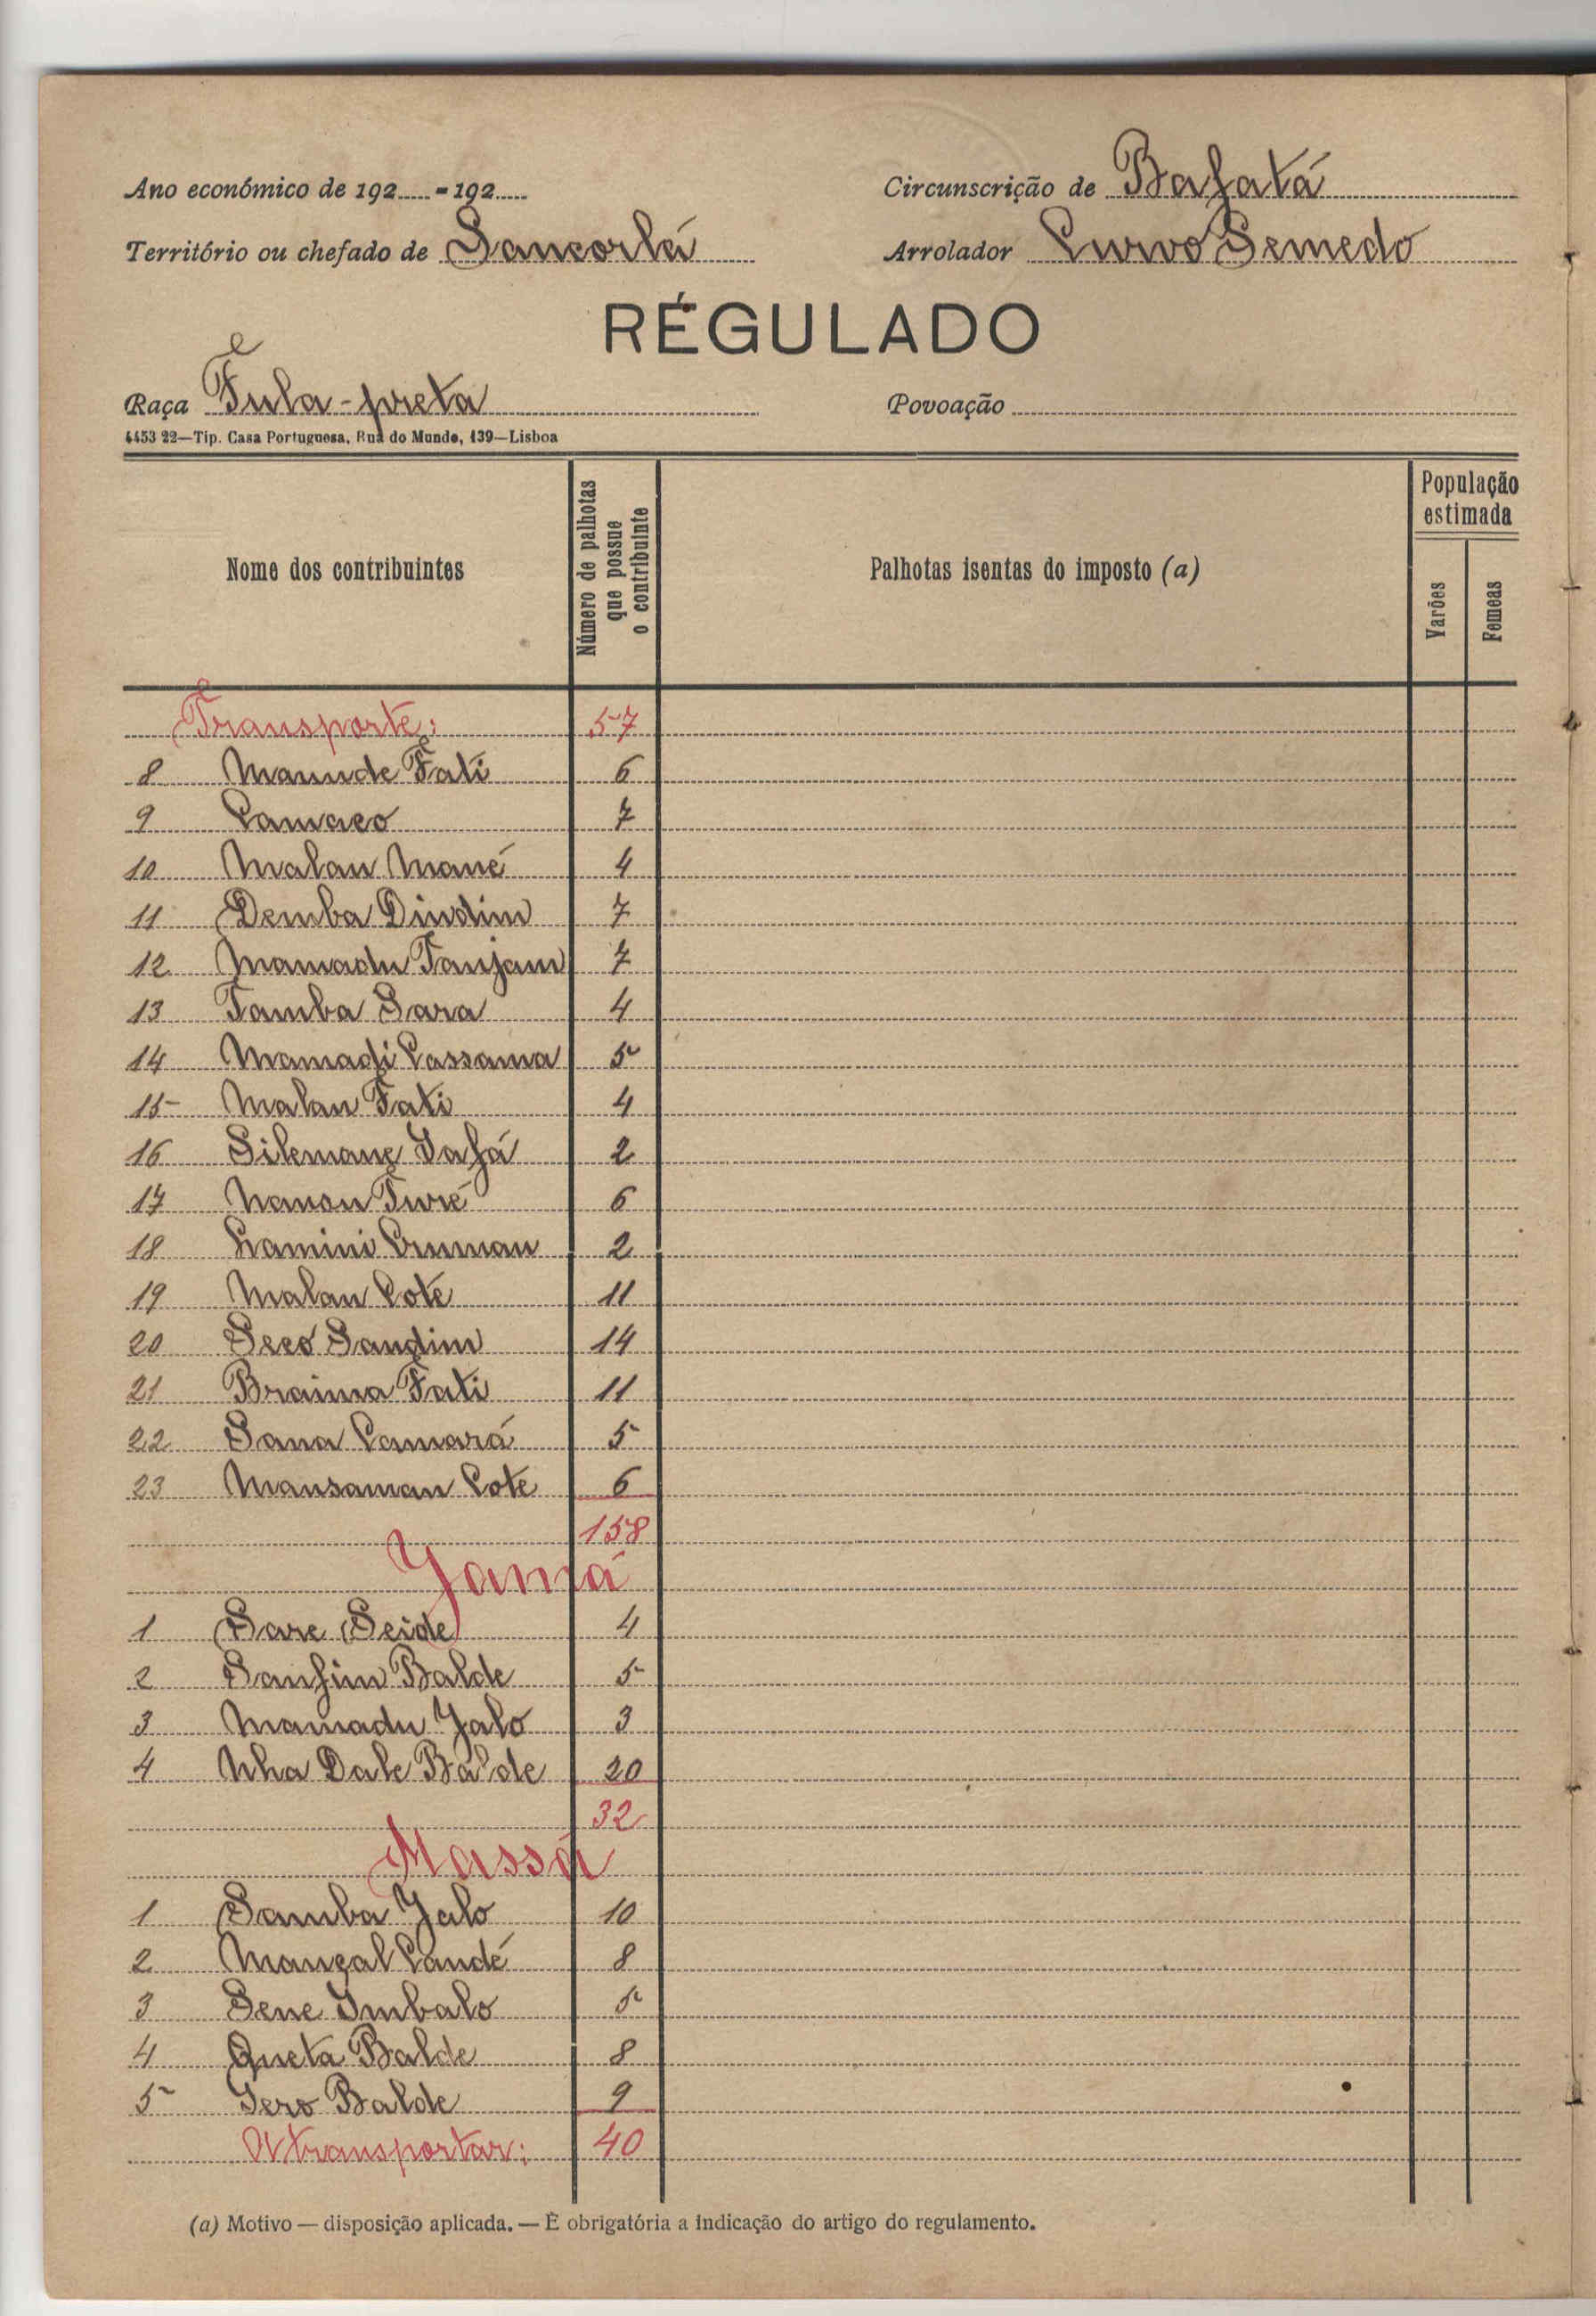 Ano económico de 192..... - 192.....
Circunscrição de Bafatá
Território ou chefado de Sancorlá
Arrolador Curvo Semedo
RÉGULADO
Raça Fula-preta
Povoação
4453 22—Tip. Casa Portuguesa, Rua do Mundo, 139—Lisboa
Nome dos contribuintes
Número de palhotas que possue o contribuinte
Palhotas isentas do imposto (a)
População estimada
Varões
Femeas
Transporte: 57
8 Maunde Fati 6
9 Camaco 7
10 Malan Mané 4
11 Demba Dindim 7
12 Mamadu Tanjam 7
13 Tamba Sara 4
14 Mamadi Cassama 5
15 Malan Fati 4
16 Silemane Jafá 2
17 Nansu Turé 6
18 Lamini Cruman 2
19 Malan Cote 11
20 Seco Sandim 14
21 Braima Fati 11
22 Sana Camará 5
23 Mansaman Cote 6
158
Jamá
1 Sare Seide 4
2 Sanfim Balde 5
3 Mamadu Jalo 3
4 Nha Dale Balde 20
32
Massá
1 Samba Jalo 10
2 Mangal Candé 8
3 Sene Imbalo 5
4 Queta Balde 8
5 Iero Balde 9
A transportar: 40
(a) Motivo — disposição aplicada. — É obrigatória a indicação do artigo do regulamento.